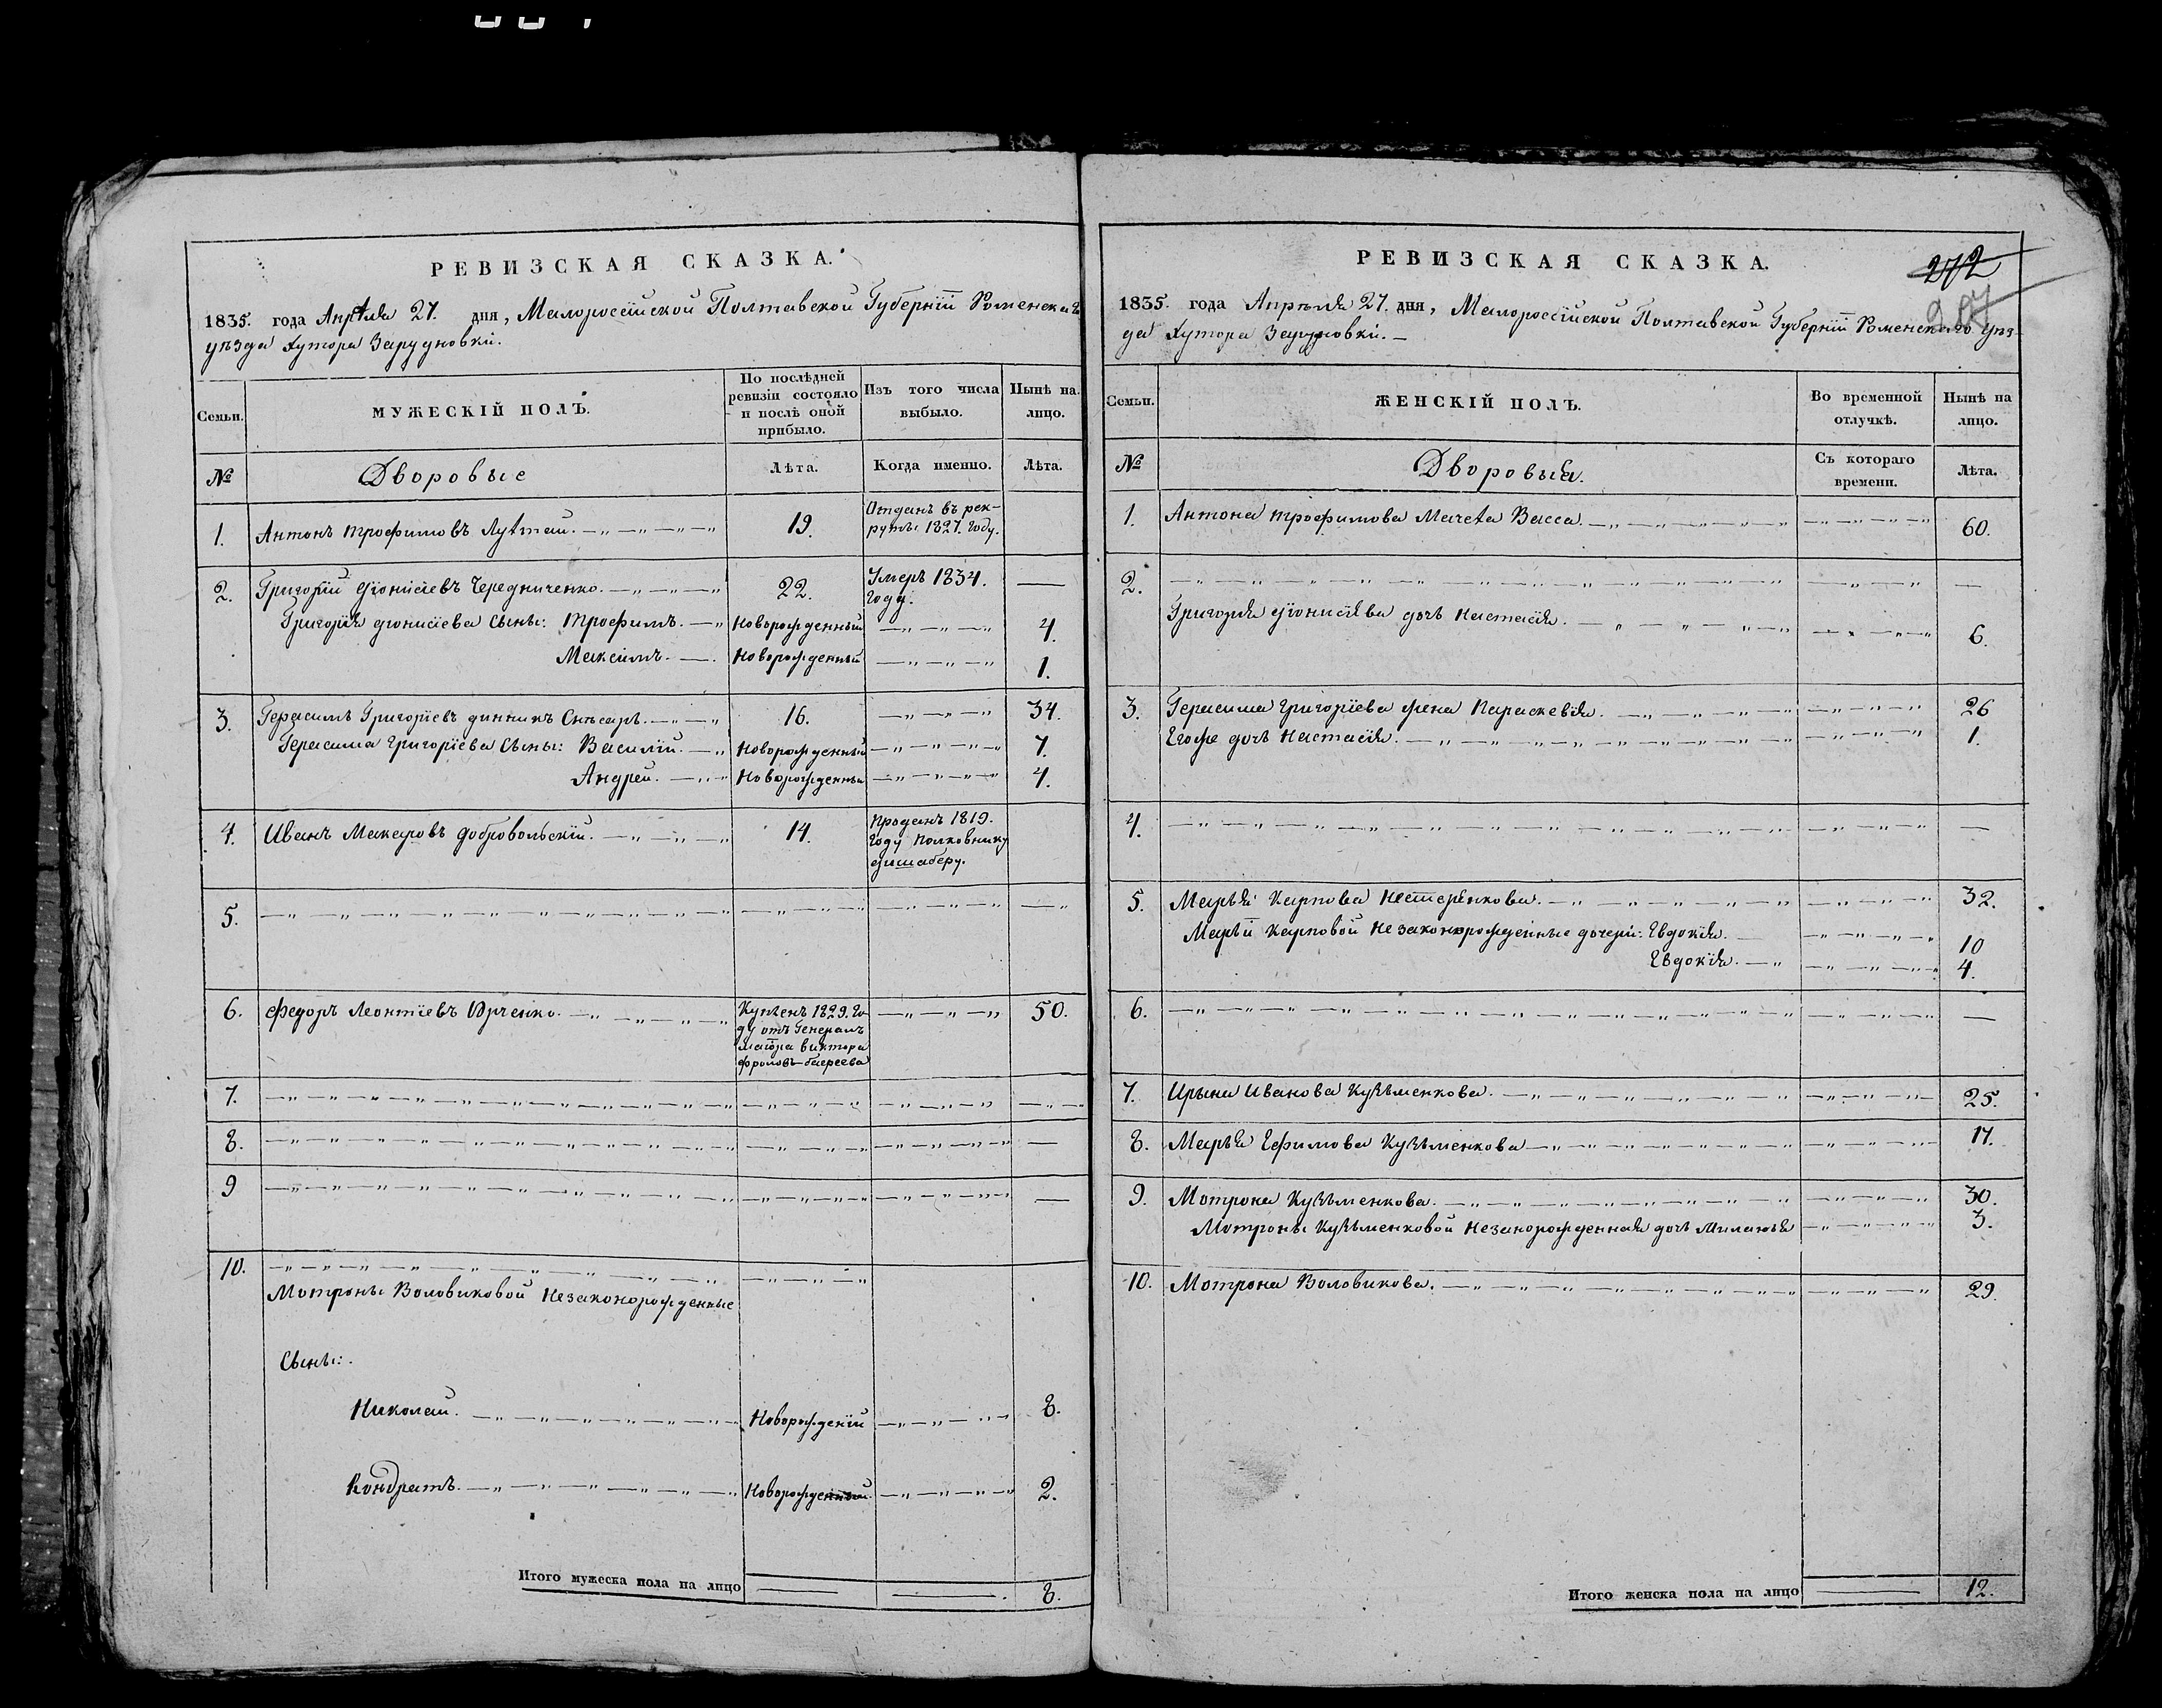 РЕВИЗСКАЯ СКАЗКА.
1835. года Апрѣля 27. дня, Малороссійской Полтавской Губерніи Роменскаго
уѣзда Хутора Зарудновки.
Семьи.
МУЖЕСКІЙ ПОЛЪ.
По послѣдней ревизіи состояло и послѣ оной прибыло.
Изъ того числа выбыло.
Нынѣ на лицо.
№
Дворовые
Лѣта.
Когда именно.
Лѣта.
1. Антонъ Трофимовъ 19. Отданъ въ рек-
руты 1827. году.
2. Григорій Діонисіевъ Чередниченко. 22. Умеръ 1834.
году.
Григорія Діонисіева сыны: Трофимъ. Новорожденный 4.
Максимъ. Новорожденный 1.
3. Герасимъ Григоріевъ Слѣсарь. 16. 34.
Герасима Григоріева сыны: Василій. Новорожденный 7.
Андрей. Новорожденный 4.
4. Иванъ Макаровъ Добровольскій. 14. Проданъ 1819.
году Полковнику
5.
6. Федоръ Леонтіевъ Юрченко. Купленъ 1829. го-
ду отъ Генералъ
маіора Виктора
50.
7.
8.
9
10.
Мотроны Воловиковой Незаконорожденные
Сыны:
Николай. Новорожденій 8.
Кондратъ. Новорожденный 2.
Итого мужеска пола на лицо 8.
РЕВИЗСКАЯ СКАЗКА.
272
1835. года Апрѣля 27. дня, Малороссійской Полтавской Губерніи Роменскаго уѣз-
да Хутора
Семьи.
ЖЕНСКІЙ ПОЛЪ.
Во временной отлучкѣ.
Нынѣ на лицо.
№
Дворовыя.
Съ котораго времени.
Лѣта.
1. Антона Трофимова Васса. 60.
2.
Григорія Діонисіева дочь Настасія. 6.
3. Герасима Григоріева жена Параскевія. 26
Егоже дочь Настасія. 1.
4.
5. Марья Карпова Нестеренкова. 32.
Марьи Карповой Незаконорожденные дочери: Евдокія. 10
Евдокія. 4.
6.
7. Ирына Иванова Кузьменкова. 25.
8. Марья Ефимова Кузьменкова 17.
9. Мотрона Кузьменкова. 30.
Мотроны Кузьменковой Незанорожденная дочь 3.
10. Мотрона Воловикова. 29.
Итого женска пола на лицо 12.